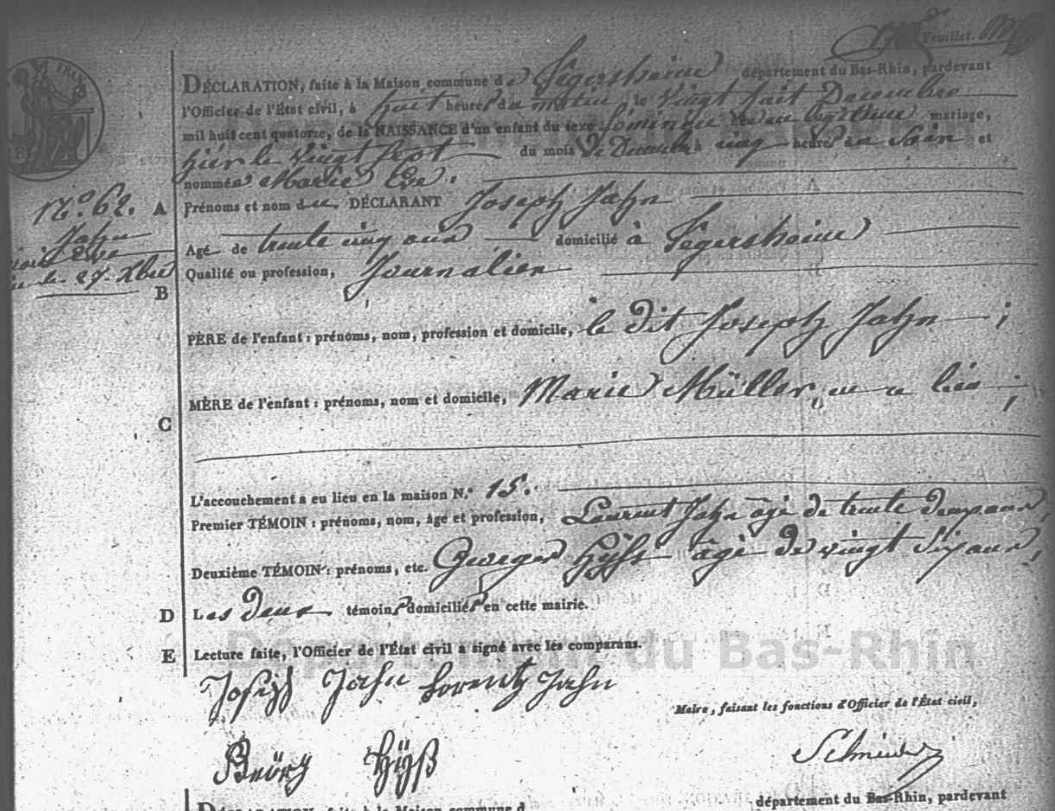 Feuillet.
DÉCLARATION, faite à la Maison commune de Fegersheim département du Bas-Rhin, pardevant
l'Officier de l'État civil, à huit heures du matin, le vingt huit Decembre
mil huit cent quatorze, de la NAISSANCE d'un enfant du sexe feminin né au legitime mariage,
hier le vingt sept du mois de Decembre à cinq heures du soir et
nommée Marie Eve.
N.º 62. A Prénoms et nom du DÉCLARANT Joseph Jahn
Jahn
Agé de trente cinq ans domicilié à Fegersheim
Marie Eve
né le 27. Xbre Qualité ou profession, Journalier
B
PÈRE de l'enfant : prénoms, nom, profession et domicile, le dit Joseph Jahn ;
MÈRE de l'enfant : prénoms, nom et domicile, Marie Müller, en ce lieu ;
C
L'accouchement a eu lieu en la maison N.º 15.
Premier TÉMOIN : prénoms, nom, âge et profession, Laurent Jahn âgé de trente deux ans,
Deuxième TÉMOIN : prénoms, etc. George Hÿß âgé de vingt six ans,
D Les deux témoins domiciliés en cette mairie.
E Lecture faite, l'Officier de l'État civil a signé avec les comparans.
Département du Bas-Rhin
Joseph Jahn Lorentz Jahn
Maire, faisant les fonctions d'Officier de l'État civil,
Geörg Hÿß
DÉCLARATION, faite à la Maison commune d département du Bas-Rhin, pardevant